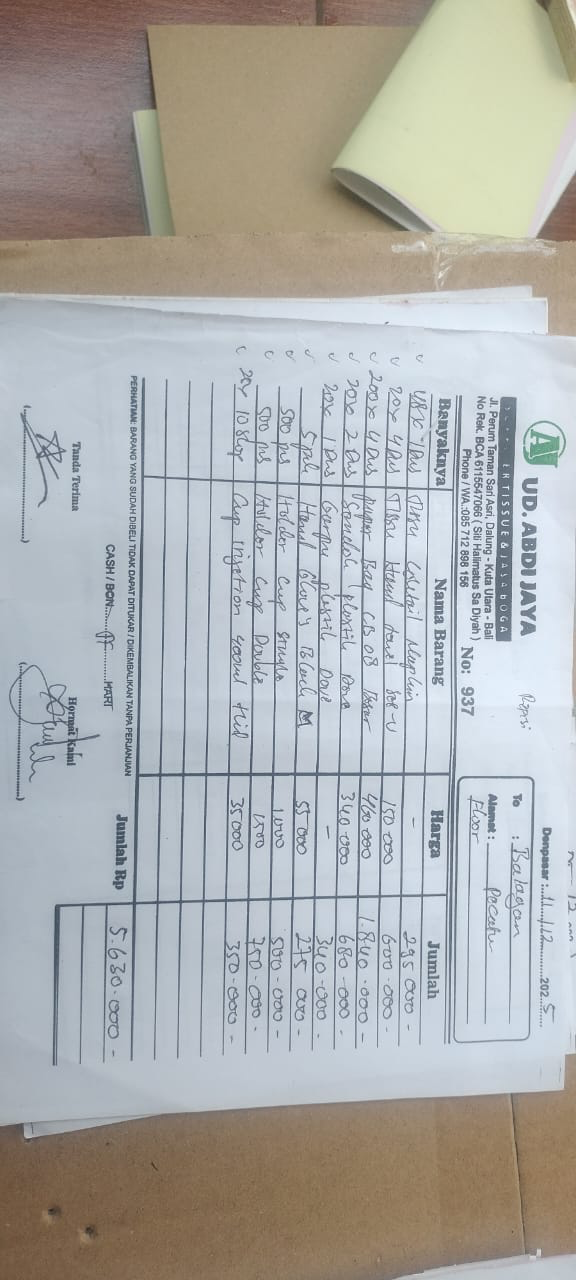 AJ UD. ABDI JAYA
ER TISSUE & JASA BOGA
Jl. Perum Taman Sari Asri, Dalung - Kuta Utara - Bali
No Rek. BCA 6115547096 ( Siti Halimatus Sa Diyah )
Phone / WA:085 712 898 156
No: 937
Denpasar : 11/12 2025
To : Balagan
Alamat : Pecatu
Floor
Banyaknya Nama Barang Harga Jumlah
1 Dus Tissu Coktail - 295.000 -
20x 4 Dus Tissu Hand Towel 150.000 600.000 -
200x 4 Dus Paper Bag CB 08 460.000 1.840.000 -
20x 2 Dus Sendok plastik Dove 340.000 680.000 -
20x 1 Dus Garpu plastik Dove - 340.000 -
5 pak Hand Gloves Black M 55.000 275.000 -
500 pcs Holder Cup Single 1.000 500.000 -
500 pcs Holder Cup Double 1.500 750.000 -
20x 10 Slop Cup Injection 400ml 35000 350.000 -
PERHATIAN: BARANG YANG SUDAH DIBELI TIDAK DAPAT DITUKAR / DIKEMBALIKAN TANPA PERJANJIAN
Jumlah Rp 5.630.000 -
CASH / BON: HARI
Tanda Terima Hormat Kami